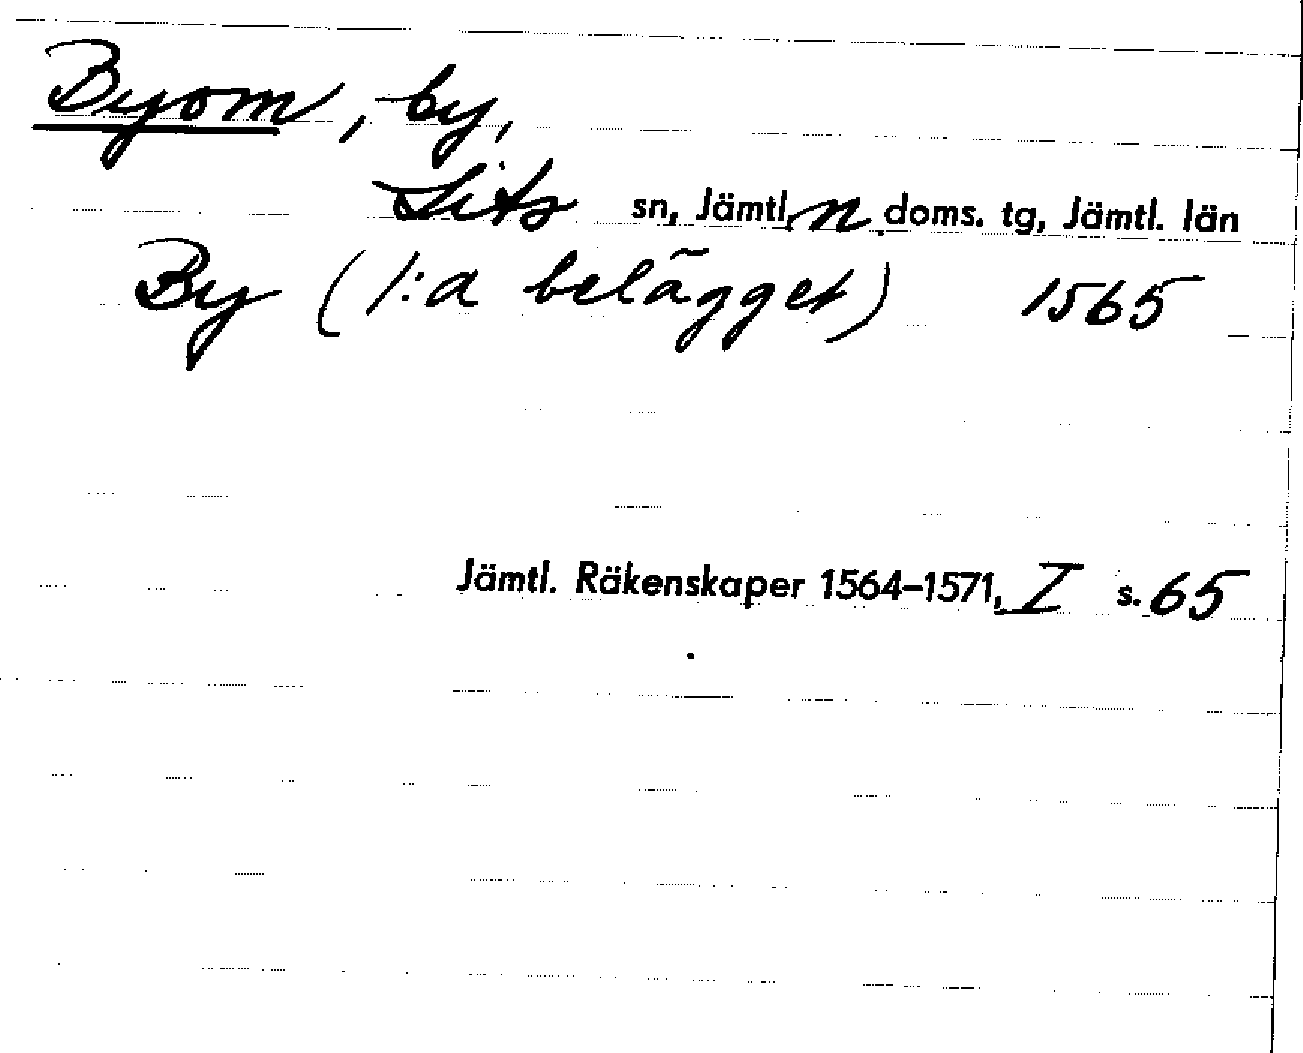 Byom, by,
Lits sn, Jämtl. n. doms. tg, Jämtl. län
By (1:a belägget) 1565
Jämtl. Räkenskaper 1564–1571, I s. 65